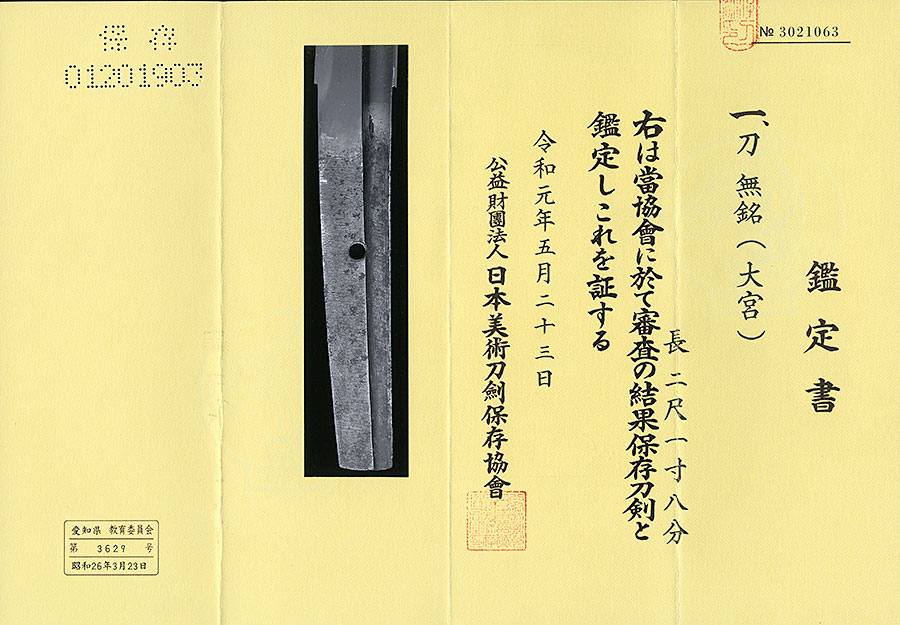 № 3021063
鑑定書
一、刀 無銘(大宮)
長二尺一寸八分
右は當協會に於て審査の結果保存刀剣と
鑑定しこれを証する
令和元年五月二十三日
公益財團法人 日本美術刀劍保存協會
保存
01201903
愛知県 教育委員会
第 3629 号
昭和26年3月23日